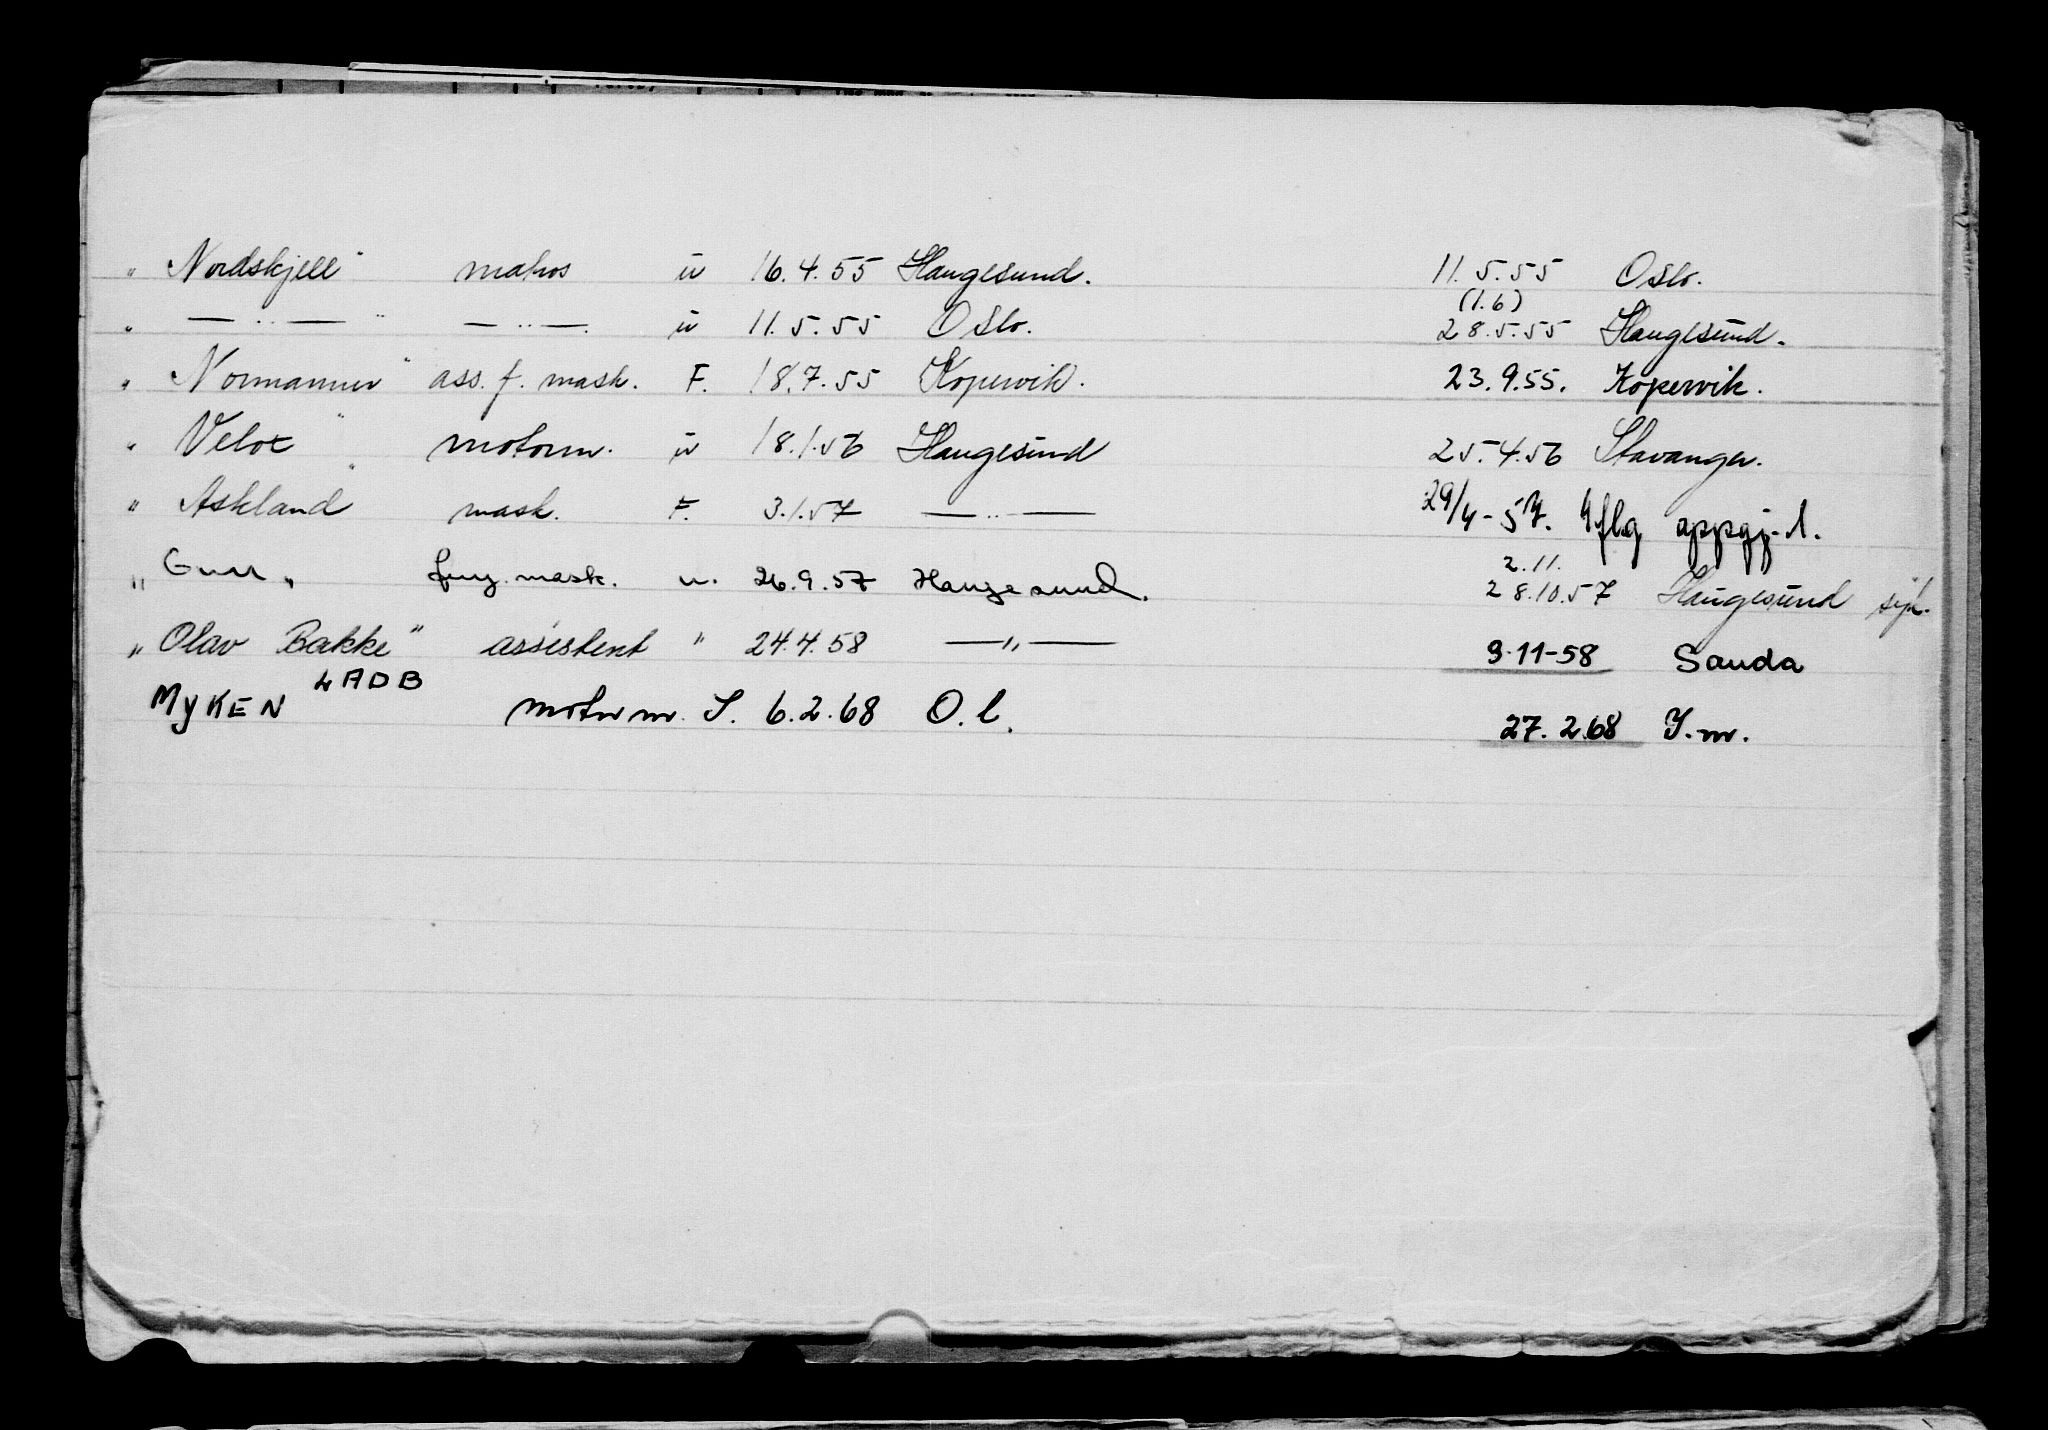 " Nordskjell" matros u 16.4.55 Haugesund. 11.5.55 Oslo.
(1.6)
" — " — " — " — u 11.5.55 Oslo. 28.5.55 Haugesund.
" Normanner" ass. f. mask. F. 18.7.55 Kopervik. 23.9.55. Kopervik.
" Velox" motorm. u 18.1.56 Haugesund 25.4.56 Stavanger.
" Askland" mask. F. 3.1.57 — " — 29/4-57. oppgj.
2.11.
" mask. u. 26.9.57 Haugesund. 28.10.57 Haugesund syk.
" Olav Bakke" assistent " 24.4.58 — " — 9-11-58 Sauda
LADB
MYKEN motorm. S. 6.2.68 O.l. 27.2.68 I.m.